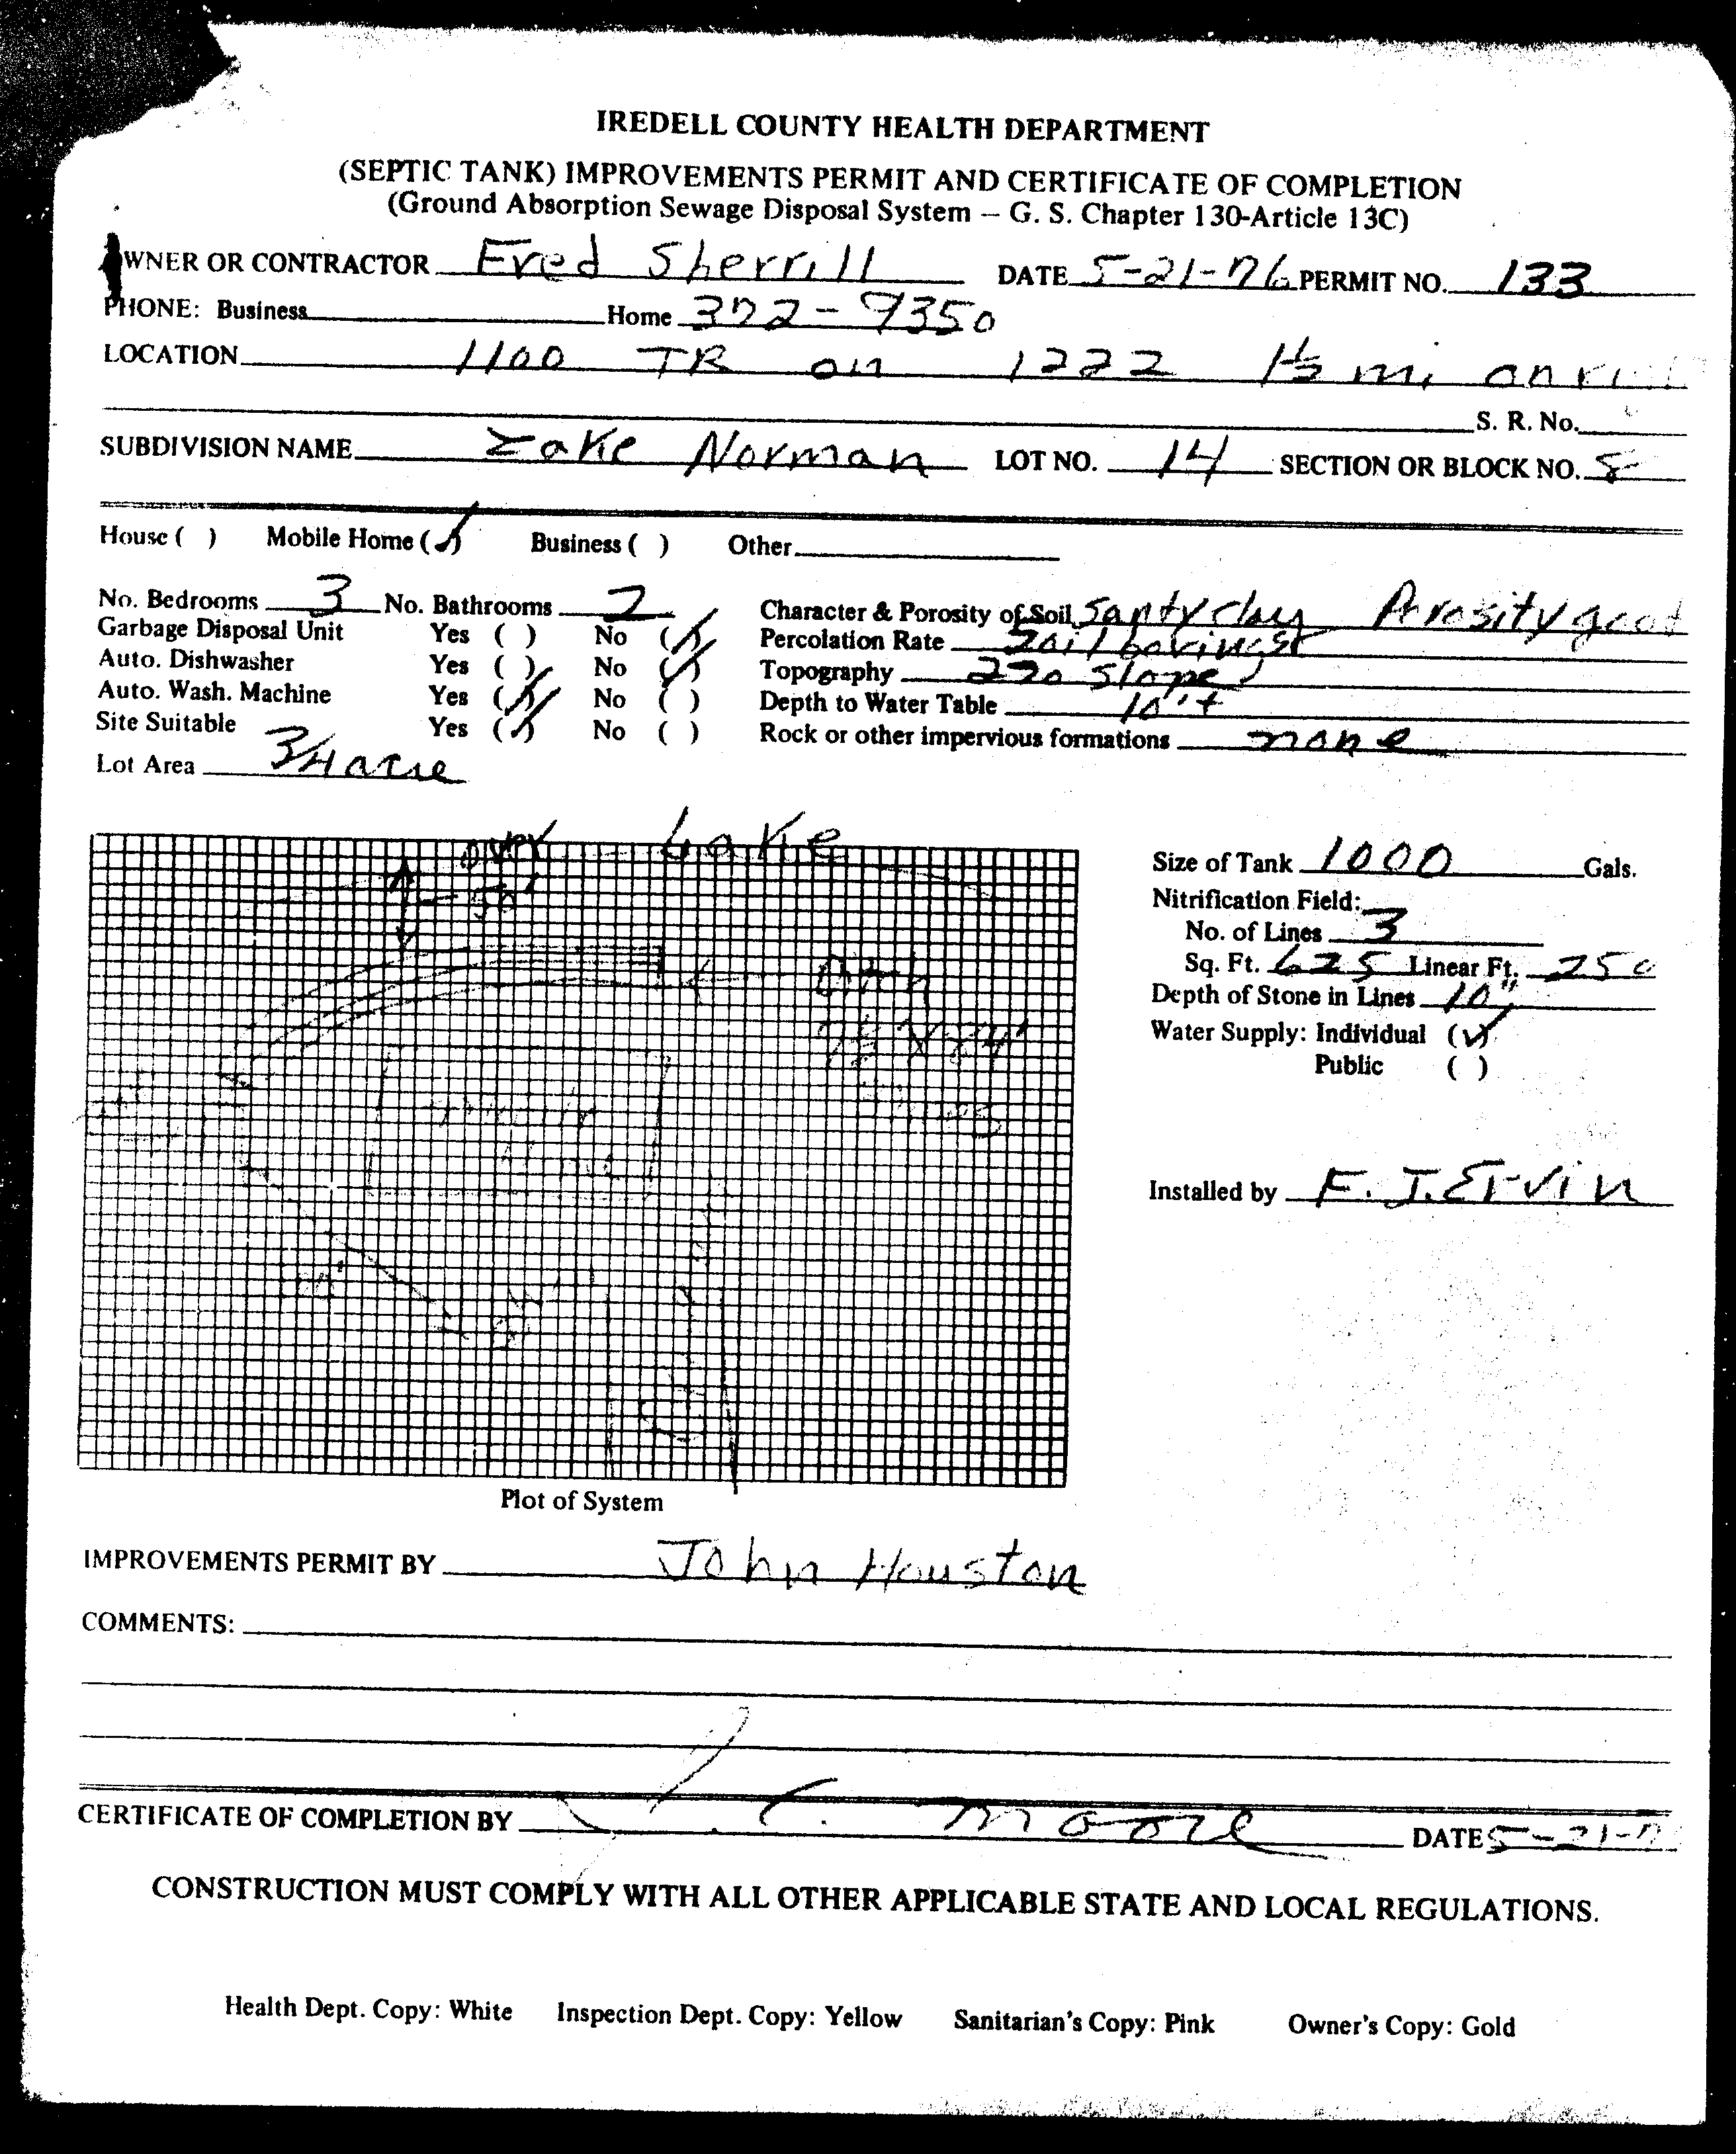 IREDELL COUNTY HEALTH DEPARTMENT
(SEPTIC TANK) IMPROVEMENTS PERMIT AND CERTIFICATE OF COMPLETION
(Ground Absorption Sewage Disposal System – G. S. Chapter 130-Article 13C)
OWNER OR CONTRACTOR Fred Sherrill DATE 5-21-76 PERMIT NO. 133
PHONE: Business Home 372-9350
LOCATION 1100 TR on 1222 1½ mi on
S. R. No.
SUBDIVISION NAME Lake Norman LOT NO. 14 SECTION OR BLOCK NO. 8
House ( ) Mobile Home (✓) Business ( ) Other
No. Bedrooms 3 No. Bathrooms 2 Character & Porosity of Soil Santy clay Porosity good
Garbage Disposal Unit Yes ( ) No (✓) Percolation Rate Soil borings
Auto. Dishwasher Yes ( ) No (✓) Topography 2% Slope
Auto. Wash. Machine Yes (✓) No ( ) Depth to Water Table 10'+
Site Suitable Yes (✓) No ( ) Rock or other impervious formations none
Lot Area 3/4 acre
over Lake
50'
Size of Tank 1000 Gals.
Nitrification Field:
No. of Lines 3
Sq. Ft. 625 Linear Ft. 250
Depth of Stone in Lines 10"
Water Supply: Individual (✓)
Public ( )
Installed by F. J. Ervin
Plot of System
IMPROVEMENTS PERMIT BY John Houston
COMMENTS:
CERTIFICATE OF COMPLETION BY J. C. Moore DATE 5-21-7
CONSTRUCTION MUST COMPLY WITH ALL OTHER APPLICABLE STATE AND LOCAL REGULATIONS.
Health Dept. Copy: White Inspection Dept. Copy: Yellow Sanitarian's Copy: Pink Owner's Copy: Gold